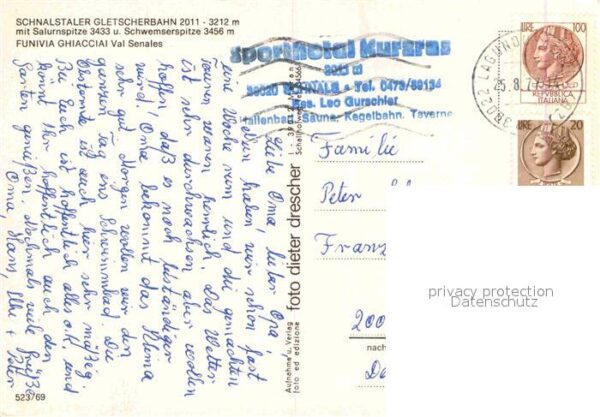 SCHNALSTALER GLETSCHERBAHN 2011 - 3212 m
mit Salurnspitze 3433 u. Schwemserspitze 3456 m
FUNIVIA GHIACCIAI Val Senales
Sporthotel Kurzras
2011 m
39020 SCHNALS - Tel. 0473/89134
Bes. Leo Gurschler
Hallenbad, Sauna, Kegelbahn, Taverne
LIRE 100
REPVBBLICA
ITALIANA
LIRE 20
Liebe Oma, lieber Opa,
nun haben wir schon fast
eine Woche rum und die gemachten
Touren waren herrlich. Das Wetter
ist sehr durchwachsen aber wir wollen
hoffen, daß es noch beständiger
wird. Oma bekommt das Klima
sehr gut. Morgen wollen wir den
ganzen Tag ins Schwimmbad. Die
Obsternte ist auch hier sehr mäßig.
Bei Euch ist hoffentlich alles o.k. und
könnt Ihr hoffentlich auch den
Garten genießen. Nochmals viele Grüße
Oma, Hans, Elke + Peter
Aufnahme u. Verlag
foto ed edizione
foto dieter drescher
Familie
Peter
Franz
200
nach
523/69
privacy protection
Datenschutz